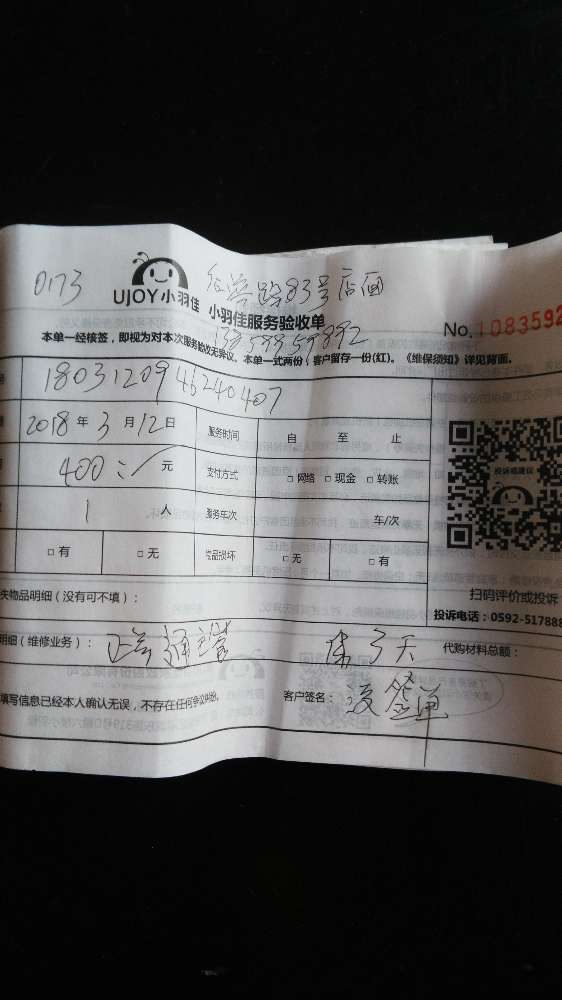 0173 后 路83号店面
UJOY小羽佳 小羽佳服务验收单
13859959892
No.1083592
本单一经核签，即视为对本次服务验收无异议。本单一式两份，客户留存一份(红)。《维保须知》详见背面。
1803120946240407
2018年3月12日 服务时间 自 至 止
400 元 支付方式 □网络 □现金 □转账
投诉或建议
1 人 服务车次 车/次
□有 □无 物品损坏 □无 □有
扫码评价或投诉
失物品明细（没有可不填）： 投诉电话：0592-517888
明细（维修业务）： 通 天 代购材料总额：
填写信息已经本人确认无误，不存在任何争议纠纷。 客户签名： 没签单